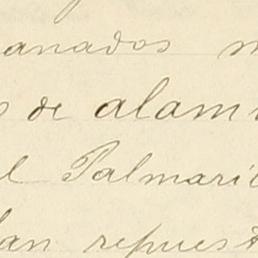 anados
de alam
l Palmari
an repuest